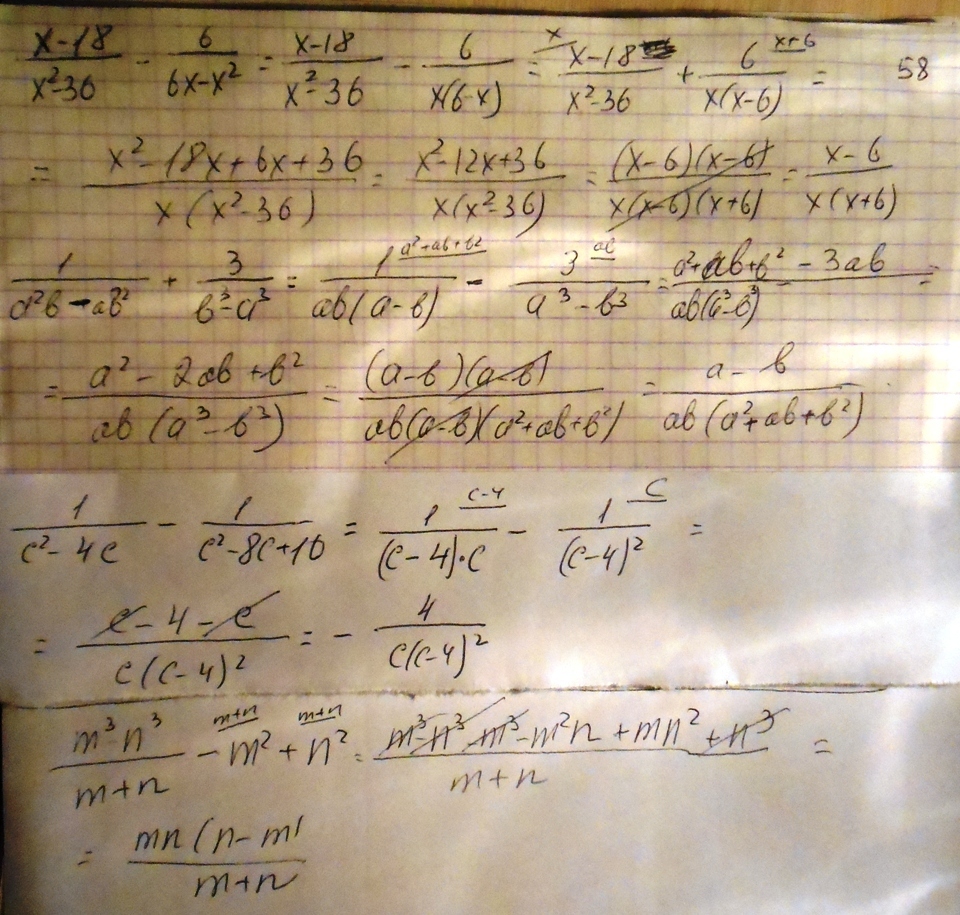 x-18/x²-36 - 6/6x-x² = x-18/x²-36 - 6/x(6-x) = x-18^x/x²-36 + 6^x+6/x(x-6) = 58
= x²-18x+6x+36/x(x²-36) = x²-12x+36/x(x²-36) = (x-6)(x-6)/x(x-6)(x+6) = x-6/x(x+6)
1/a²b-ab² + 3/b³-a³ = 1^a²+ab+b²/ab(a-b) - 3^ab/a³-b³ = a²+ab+b²-3ab/ab(a³-b³) =
= a²-2ab+b²/ab(a³-b³) = (a-b)(a-b)/ab(a-b)(a²+ab+b²) = a-b/ab(a²+ab+b²)
1/c²-4c - 1/c²-8c+16 = 1^c-4/(c-4)·c - 1^c/(c-4)² =
= c-4-c/c(c-4)² = - 4/c(c-4)²
m³-n³/m+n - m²^m+n + n²^m+n = m³-n³-m³-m²n+mn²+n³/m+n =
= mn(n-m)/m+n